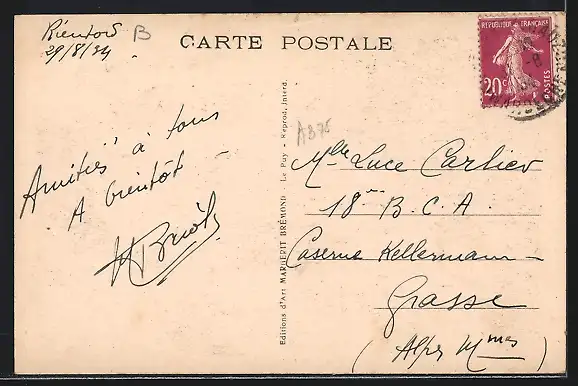 29/8/34
B
CARTE POSTALE
REPUBLIQUE FRANÇAISE
20c
POSTES
A375
Amitiés à tous
A bientôt
Editions d'Art MARGERIT BRÉMOND - Le Puy - Reprod. Interd.
Mlle Luce Carlier
18me B.C.A.
Caserne Kellermann -
Grasse
(Alpes Mmes)